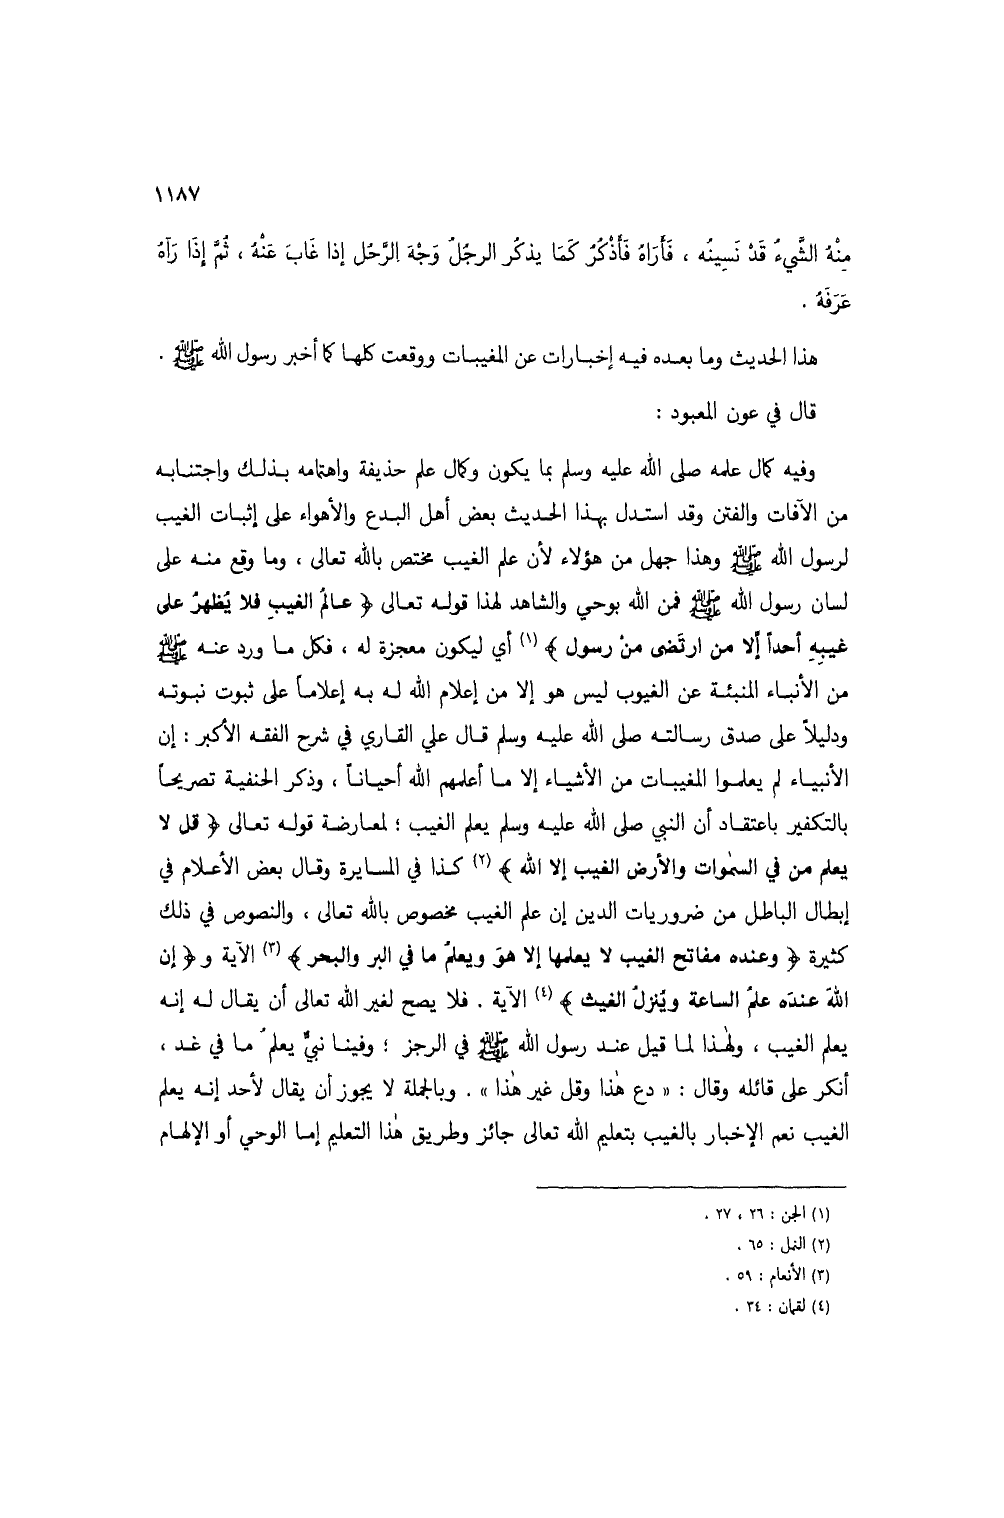 ١١٨٧
مِنْهُ الشَّيءُ قَدْ نَسِينُه ، فَأَرَاهُ فَأَذْكُرُ كَمَا يذكُر الرجُلُ وَجْهَ الرَّجُل إذا غَابَ عَنْهُ ، ثُمَّ إِذَا رَآهُ
عَرَفَهُ .
هذا الحديث وما بعده فيه إخبارات عن المغيبات ووقعت كلها كما أخبر رسول الله ﷺ .
قال في عون المعبود :
وفيه كمال علمه صلى الله عليه وسلم بما يكون وكمال علم حذيفة واهتمامه بذلك واجتنابه
من الآفات والفتن وقد استدل بهذا الحديث بعض أهل البدع والأهواء على إثبات الغيب
لرسول الله ﷺ وهذا جهل من هؤلاء لأن علم الغيب مختص بالله تعالى ، وما وقع منه على
لسان رسول الله ﷺ فمن الله بوحي والشاهد لهذا قوله تعالى ﴿ عالمُ الغيبِ فلا يُظهرُ على
غيبِهِ أحداً إلا من ارتَضى منْ رسول ﴾ (١) أي ليكون معجزة له ، فكل ما ورد عنه ﷺ
من الأنباء المنبئة عن الغيوب ليس هو إلا من إعلام الله له به إعلاماً على ثبوت نبوته
ودليلاً على صدق رسالته صلى الله عليه وسلم قال علي القاري في شرح الفقه الأكبر : إن
الأنبياء لم يعلموا المغيبات من الأشياء إلا ما أعلمهم الله أحياناً ، وذكر الحنفية تصريحاً
بالتكفير باعتقاد أن النبي صلى الله عليه وسلم يعلم الغيب ؛ لمعارضة قوله تعالى ﴿ قل لا
يعلم من في السمٰوات والأرض الغيب إلا الله ﴾ (٢) كذا في المسايرة وقال بعض الأعلام في
إبطال الباطل من ضروريات الدين إن علم الغيب مخصوص بالله تعالى ، والنصوص في ذلك
كثيرة ﴿ وعنده مفاتح الغيب لا يعلمها إلا هوَ ويعلمُ ما في البر والبحر ﴾ (٣) الآية و ﴿ إن
اللهَ عندَه علمُ الساعة ويُنزلُ الغيث ﴾ (٤) الآية . فلا يصح لغير الله تعالى أن يقال له إنه
يعلم الغيب ، ولهٰذا لما قيل عند رسول الله ﷺ في الرجز ؛ وفينا نبيٌّ يعلمُ ما في غد ،
أنكر على قائله وقال : « دع هٰذا وقل غير هٰذا » . وبالجملة لا يجوز أن يقال لأحد إنه يعلم
الغيب نعم الإخبار بالغيب بتعليم الله تعالى جائز وطريق هٰذا التعليم إما الوحي أو الإلهام
(١) الجن : ٢٦ ، ٢٧ .
(٢) النمل : ٦٥ .
(٣) الأنعام : ٥٩ .
(٤) لقمان : ٣٤ .